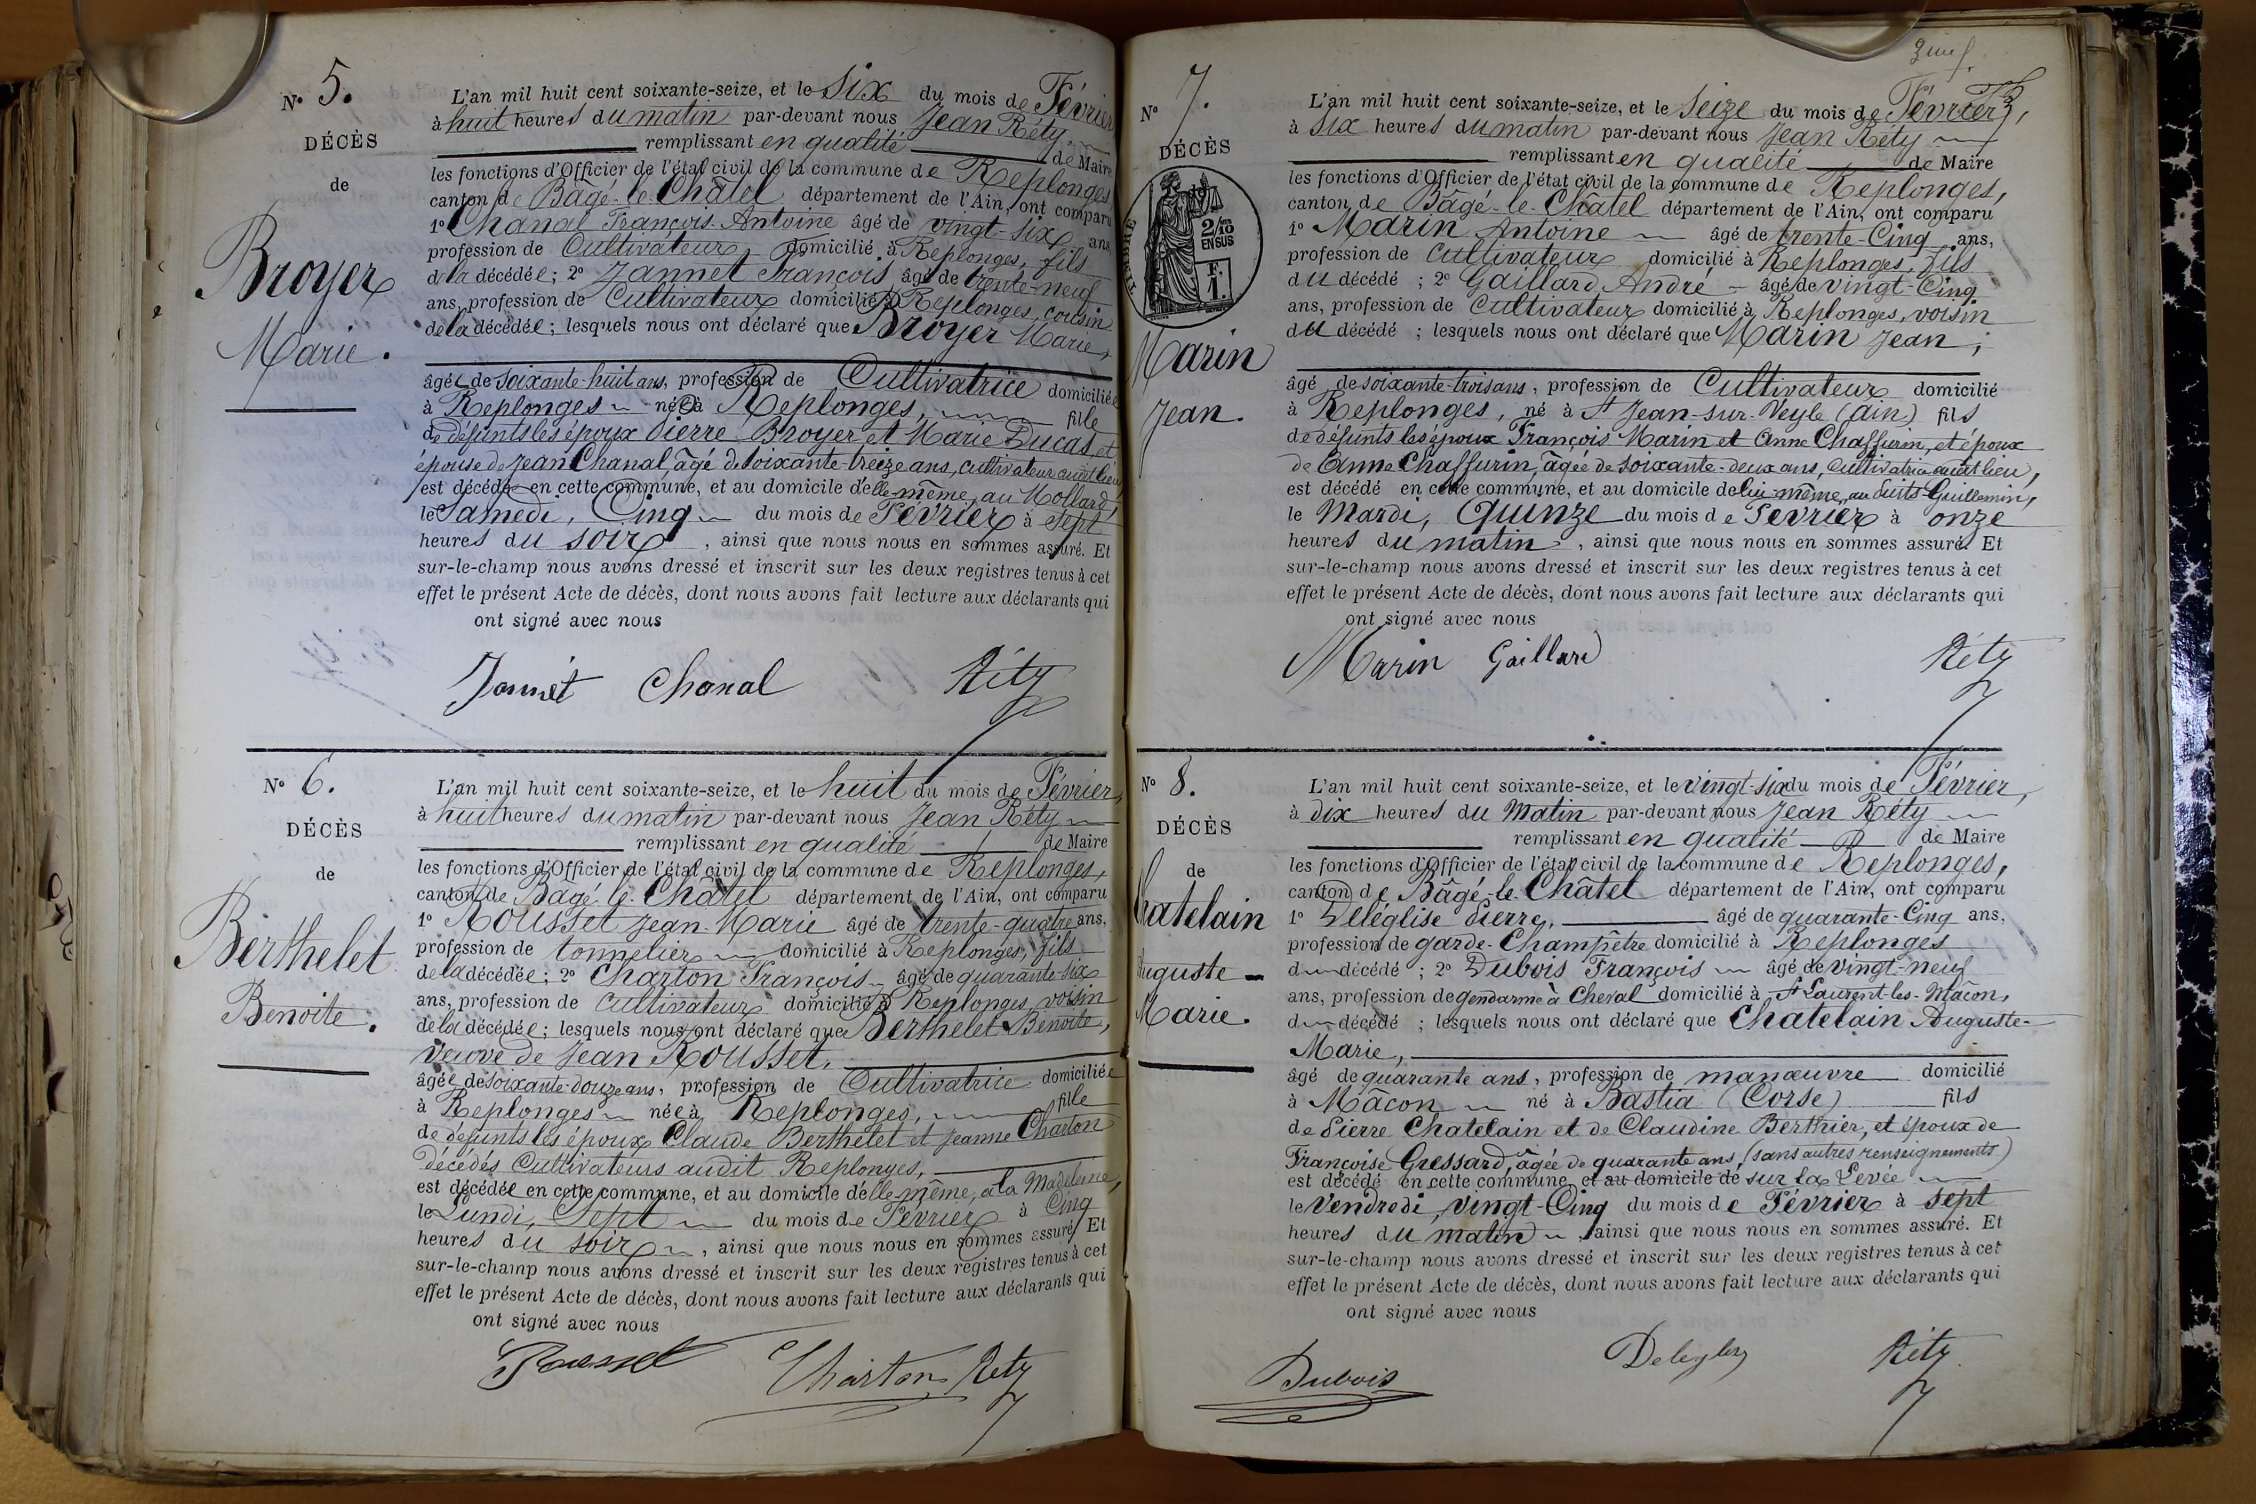 N° 5.
DÉCÈS
de
Broyer
Marie.
L'an mil huit cent soixante-seize, et le Six du mois de Février
à huit heures du matin par-devant nous Jean Réty
remplissant en qualité de Maire
les fonctions d'Officier de l'état civil de la commune de Replonges
canton de Bâgé-le-Châtel département de l'Ain, ont comparu
1° Chanal François-Antoine âgé de vingt-six ans,
profession de Cultivateur domicilié à Replonges, fils
de la décédée; 2° Jannet François âgé de trente-neuf
ans, profession de Cultivateur domicilié à Replonges, cousin
de la décédée; lesquels nous ont déclaré que Broyer Marie,
âgée de soixante-huit ans, profession de Cultivatrice domiciliée
à Replonges née à Replonges, fille
de défunts les époux Pierre Broyer et Marie Ducas, et
épouse de Jean Chanal, âgé de soixante-treize ans, cultivateur audit lieu,
est décédée en cette commune, et au domicile d'elle-même, au Mollard,
le Samedi, Cinq du mois de Février à sept
heures du soir, ainsi que nous nous en sommes assuré. Et
sur-le-champ nous avons dressé et inscrit sur les deux registres tenus à cet
effet le présent Acte de décès, dont nous avons fait lecture aux déclarants qui
ont signé avec nous
Jannet Chanal Réty
N° 6.
DÉCÈS
de
Berthelet
Benoite.
L'an mil huit cent soixante-seize, et le huit du mois de Février,
à huit heures du matin par-devant nous Jean Réty
remplissant en qualité de Maire
les fonctions d'Officier de l'état civil de la commune de Replonges,
canton de Bâgé-le-Châtel département de l'Ain, ont comparu
1° Rousset Jean-Marie âgé de trente-quatre ans,
profession de tonnelier domicilié à Replonges, fils
de la décédée; 2° Charton François âgé de quarante-six
ans, profession de Cultivateur domicilié à Replonges, voisin
de la décédée; lesquels nous ont déclaré que Berthelet Benoite,
veuve de Jean Rousset,
âgée de soixante-douze ans, profession de Cultivatrice domiciliée
à Replonges née à Replonges, fille
de défunts les époux Claude Berthelet et Jeanne Charton
décédés Cultivateurs audit Replonges,
est décédée en cette commune, et au domicile d'elle-même, à la Madeleine,
le Lundi, Sept du mois de Février à Cinq
heures du soir, ainsi que nous nous en sommes assuré. Et
sur-le-champ nous avons dressé et inscrit sur les deux registres tenus à cet
effet le présent Acte de décès, dont nous avons fait lecture aux déclarants qui
ont signé avec nous
Rousset Charton Réty
N° 7.
DÉCÈS
2/10
EN SUS
F.
1.
Marin
Jean.
L'an mil huit cent soixante-seize, et le Seize du mois de Février,
à six heures du matin par-devant nous Jean Réty
remplissant en qualité de Maire
les fonctions d'Officier de l'état civil de la commune de Replonges,
canton de Bâgé-le-Châtel département de l'Ain, ont comparu
1° Marin Antoine âgé de trente-Cinq ans,
profession de Cultivateur domicilié à Replonges, fils
du décédé; 2° Gaillard André âgé de vingt-Cinq
ans, profession de Cultivateur domicilié à Replonges, voisin
du décédé; lesquels nous ont déclaré que Marin Jean,
âgé de soixante-trois ans, profession de Cultivateur domicilié
à Replonges, né à St Jean-sur-Veyle (Ain) fils
de défunts les époux François Marin et Anne Chaffurin, et époux
de Anne Chaffurin, âgée de soixante-deux ans, Cultivatrice audit lieu,
est décédé en cette commune, et au domicile de lui-même, au Puits-Guillemin,
le Mardi, Quinze du mois de Février à onze
heures du matin, ainsi que nous nous en sommes assuré. Et
sur-le-champ nous avons dressé et inscrit sur les deux registres tenus à cet
effet le présent Acte de décès, dont nous avons fait lecture aux déclarants qui
ont signé avec nous
Marin Gaillard Réty
N° 8.
DÉCÈS
de
Chatelain
Auguste-
Marie.
L'an mil huit cent soixante-seize, et le vingt-six du mois de Février,
à dix heures du Matin par-devant nous Jean Réty
remplissant en qualité de Maire
les fonctions d'Officier de l'état civil de la commune de Replonges,
canton de Bâgé-le-Châtel département de l'Ain, ont comparu
1° Deléglise Pierre, âgé de quarante-Cinq ans,
profession de garde-Champêtre domicilié à Replonges
d décédé; 2° Dubois François âgé de vingt-neuf
ans, profession de gendarme à Cheval domicilié à St Laurent-les-Mâcon,
d décédé; lesquels nous ont déclaré que Chatelain Auguste-
Marie,
âgé de quarante ans, profession de manœuvre domicilié
à Mâcon né à Bastia (Corse) fils
de Pierre Chatelain et de Claudine Berthier, et époux de
Françoise Gressard, âgée de quarante ans, (sans autres renseignements)
est décédé en cette commune et au domicile de sur la Levée
le Vendredi, vingt-Cinq du mois de Février à sept
heures du matin, ainsi que nous nous en sommes assuré. Et
sur-le-champ nous avons dressé et inscrit sur les deux registres tenus à cet
effet le présent Acte de décès, dont nous avons fait lecture aux déclarants qui
ont signé avec nous
Dubois Réty